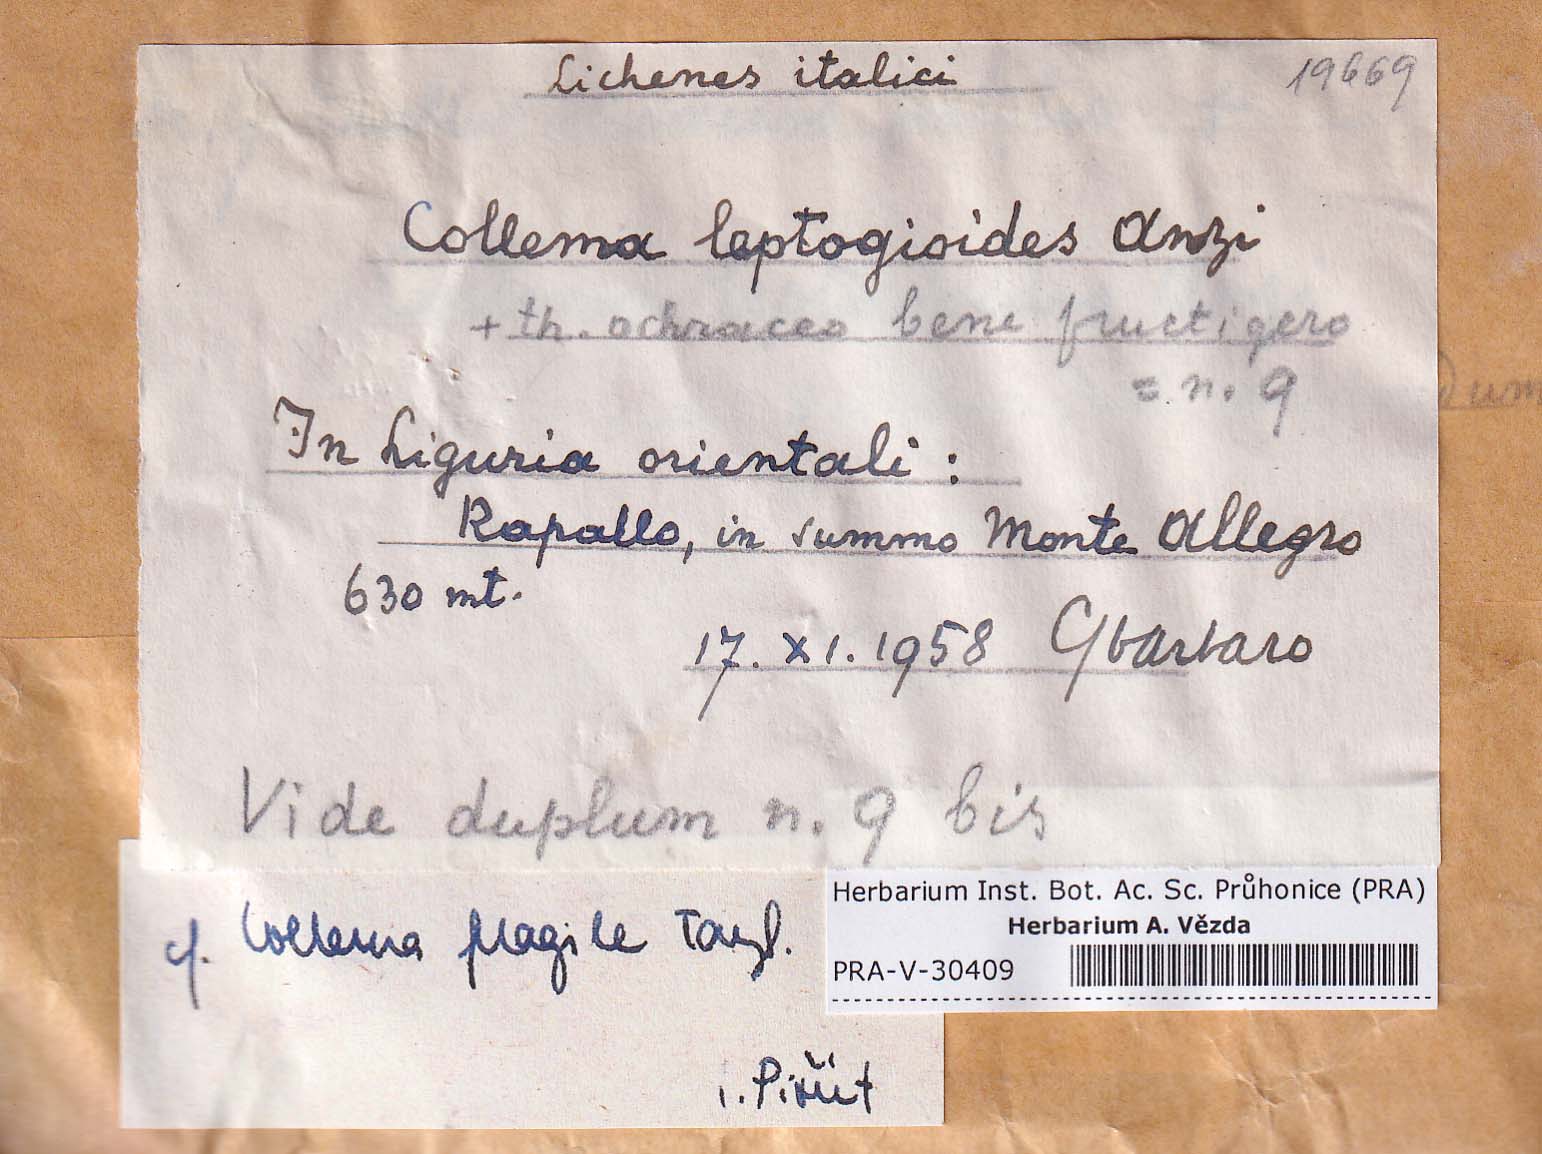 Lichenes italici
19669
Collema leptogioides Anzi
+ th. ochraceo bene fructigero
= n. 9
In Liguria orientali :
Rapallo, in summo Monte Allegro
630 mt.
17. XI. 1958 Gbarbaro
Vide duplum n. 9 bis
cf. Collema fragile Tayl.
I. Pišút
Herbarium Inst. Bot. Ac. Sc. Průhonice (PRA)
Herbarium A. Vězda
PRA-V-30409